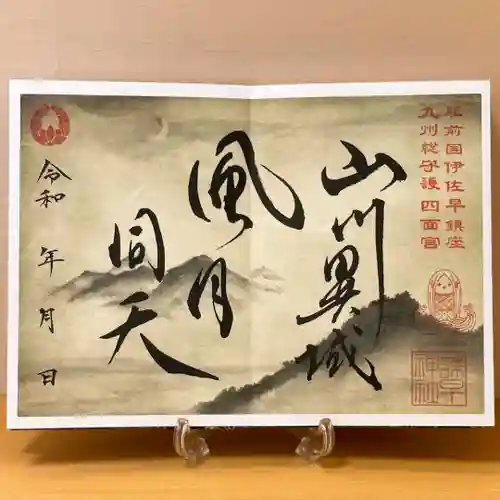 肥前国伊佐早鎮座
九州総守護 四面宮
山川異域
風月
同天
諫早
神社
令和 年 月 日